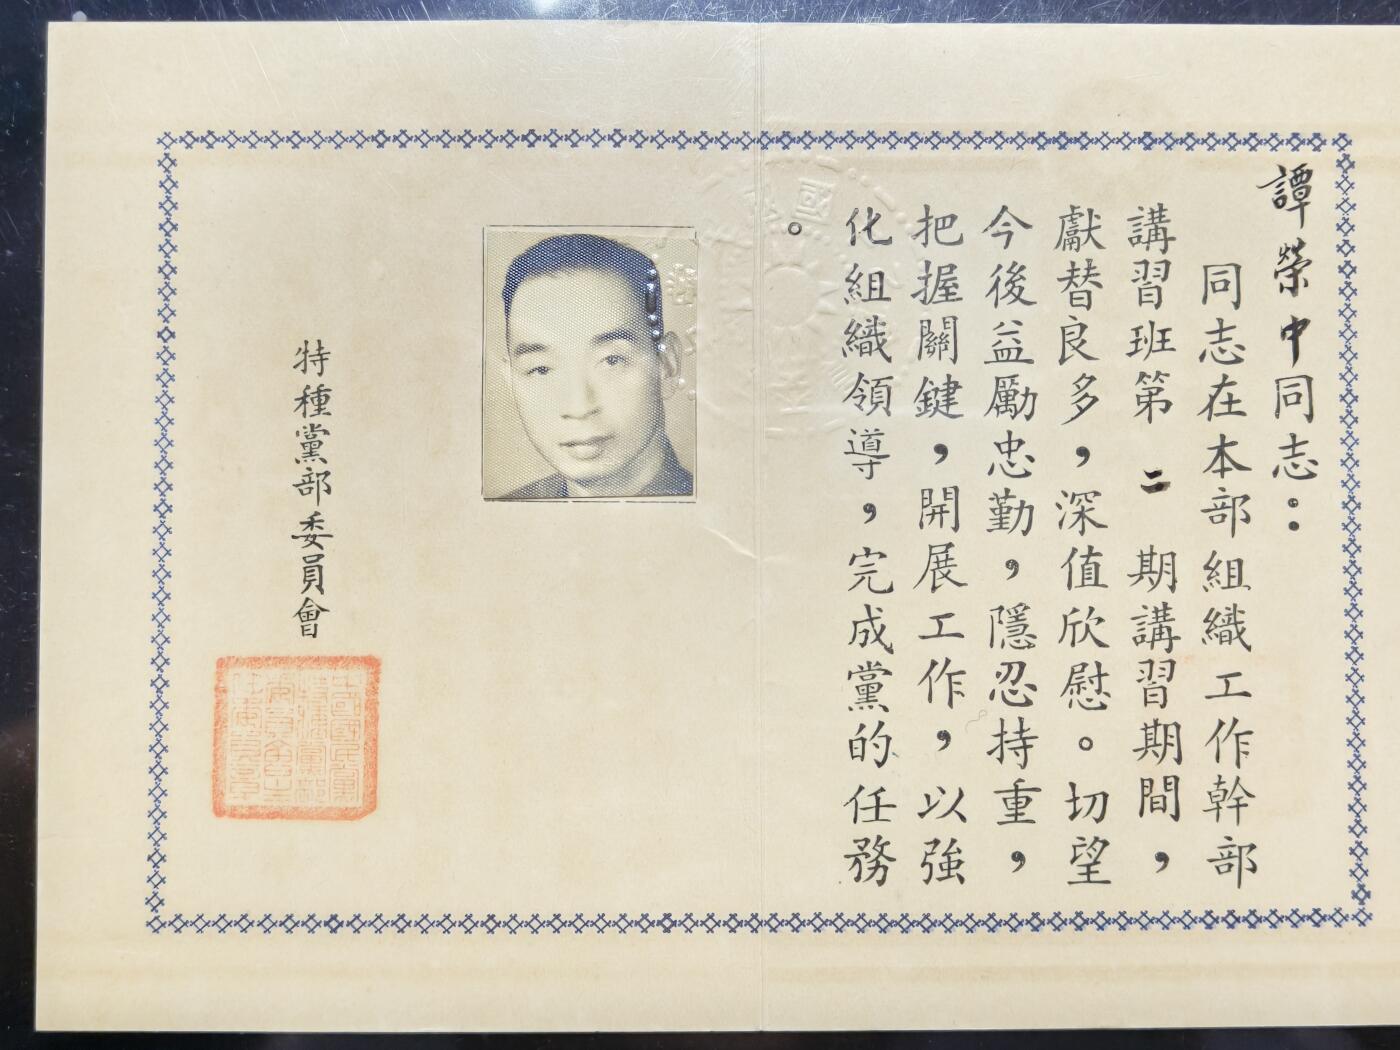 譚榮中同志：
同志在本部組織工作幹部
講習班第二期講習期間，
獻替良多，深值欣慰。切望
今後益勵忠勤，隱忍持重，
把握關鍵，開展工作，以強
化組織領導，完成黨的任務
。
特種黨部委員會